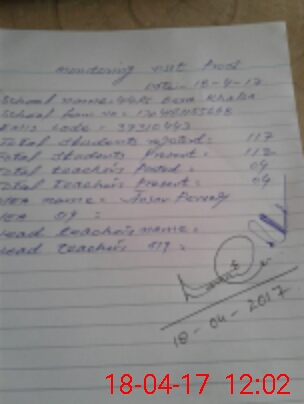 monitoring visit Proof
Date - 18-4-17
School name: GGPS Dera Khalsa
School
EMIS code = 37310443
Total students enrolled: 117
Total students Present: 112
Total teachers Posted: 04
Total Teachers Present: 04
name:
sig :
Lead teacher's name:
Lead teacher's sig:
18-04-2017
18-04-17 12:02